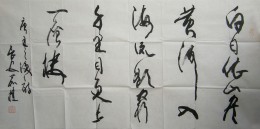 白日依山尽
黄河入
海流欲穷
千里目更上
一层楼